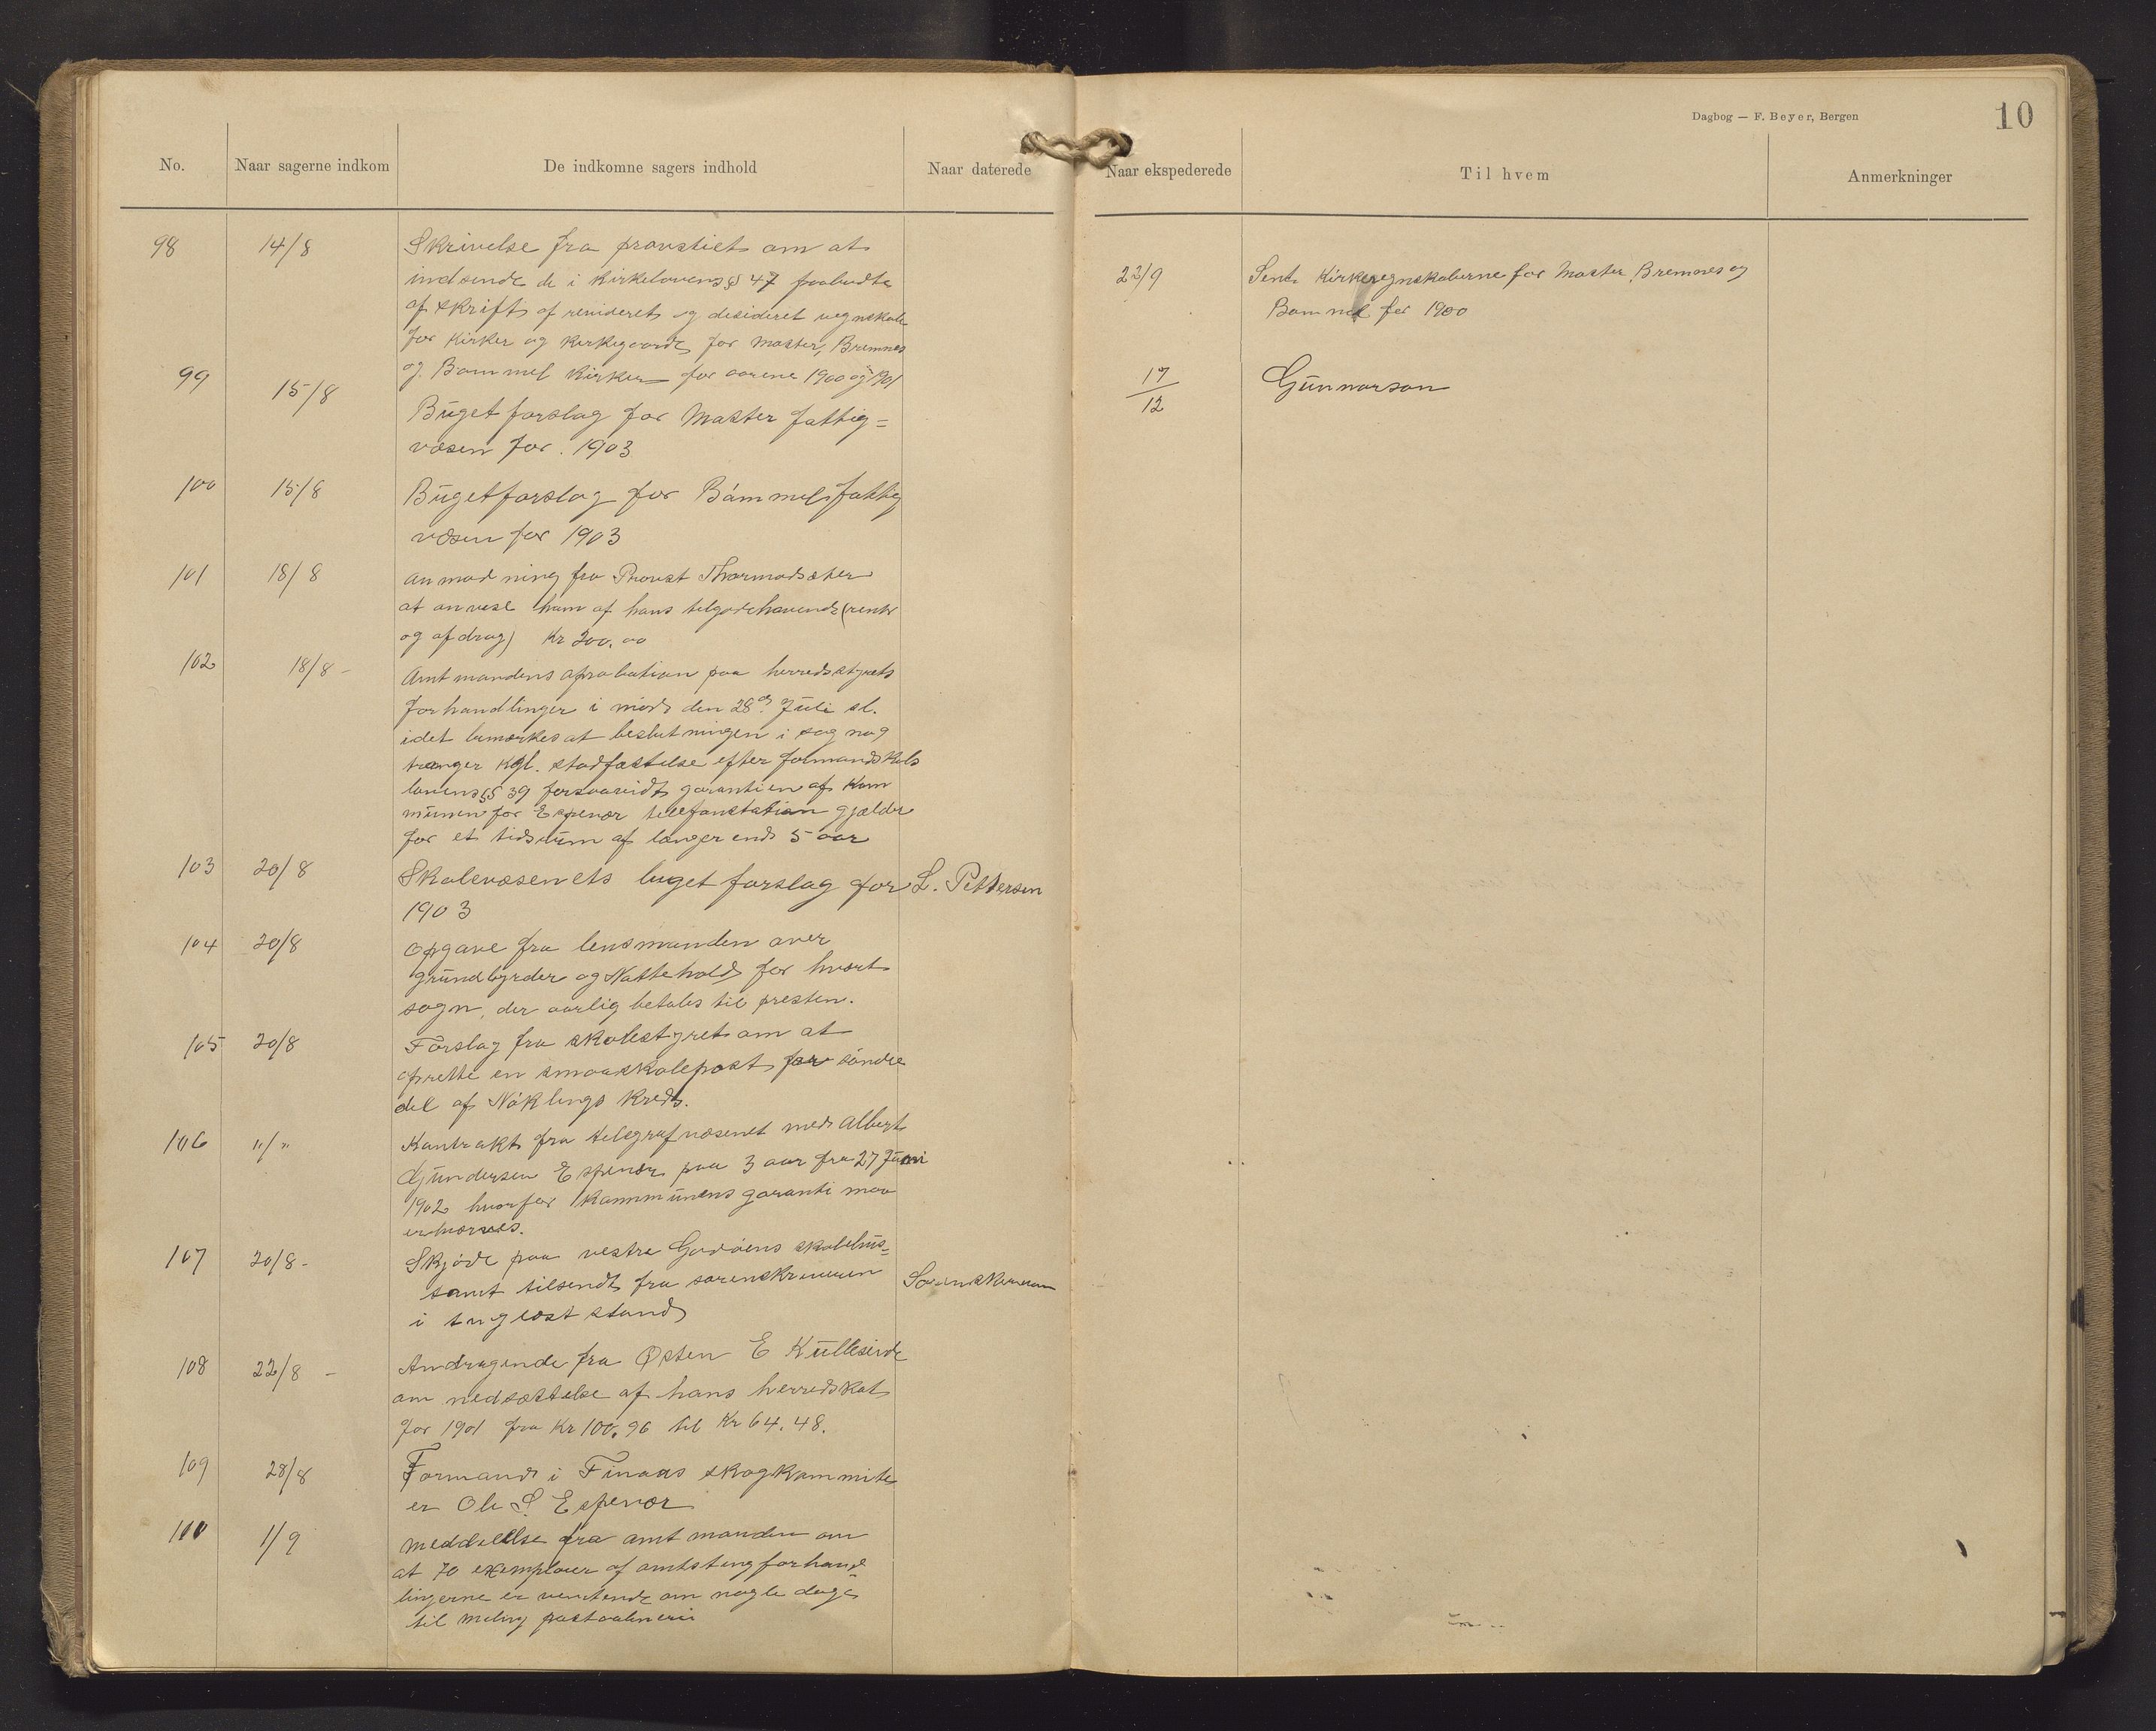 Dagbog — F. Beyer, Bergen
10
No.
Naar sagerne indkom
De indkomne sagers indhold
Naar daterede
Naar ekspederede
Til hvem
Anmerkninger
98 14/8 Skrivelse fra provstiet om at
indsende de i Kirkelovens § 47 paabudte
afskrift af revideret og desideret regnskab
for Kirker og Kirkegaarde for Moster, Bremnes
og Bømmel Kirker for aarene 1900 og 1901
23/9 Sent Kirkeregnskaberne for Moster, Bremnes og
Bømmel for 1900
99 15/8 Büget forslag for Moster fattig=
væsen for. 1903
17/12 Gunnarson
100 15/8 Bügetforslag for Bømmel fattig
væsen for 1903
101 18/8 Anmodning fra Provst Thormodsæter
at anvise ham af hans tilgodehavende (rente
og afdrag) Kr 200.00
102 18/8 - Amtmandens aprobation paa herredsstyrets
forhandlinger i møde den 28de Juli sl.
idet bemærkes at beslutningen i sag no 9
trænger Kgl. stadfæstelse efter formandskabs
lovens § 39 forsaavidt garantien af Kom
münen for Espevær telefonstation gjælder
for et tidsrüm af længer end 5 aar
103 20/8 Skolevæsenets büget forslag for L. Pettersen
1903
104 20/8 Opgave fra lensmanden over
gründbyrder og Nattehold for hvert
sogn, der aarlig betales til presten.
105 20/8 Forslag fra skolestyret om at
oprette en smaaskolepost for søndre
del af Nøklings Kreds.
106 "/" Kontrakt fra telegrafvæsenet med Albert
Gündersen Espevær paa 3 aar fra 27 Juni
1902 hvorfor Kommünens garanti maa
erhverves.
107 20/8 - Skjøde paa vestre Godøens skolehüs=
tomt tilsendt fra sorenskriveren Sorenskriveren
i tinglæst stand
108 22/8 - Andragende fra Østen E Külleseide
om nedsættelse af hans herredskat
for 1901 fra Kr 100.96 til Kr 64.48.
109 28/8 Formand i Finaas skogkommite
er Ole S. Espevær
110 1/9 Meddelelse fra amtmanden om
at 70 exemplarer af amtstingforhand
lingerne er ventende om nogle dage
til Meling postaabneri